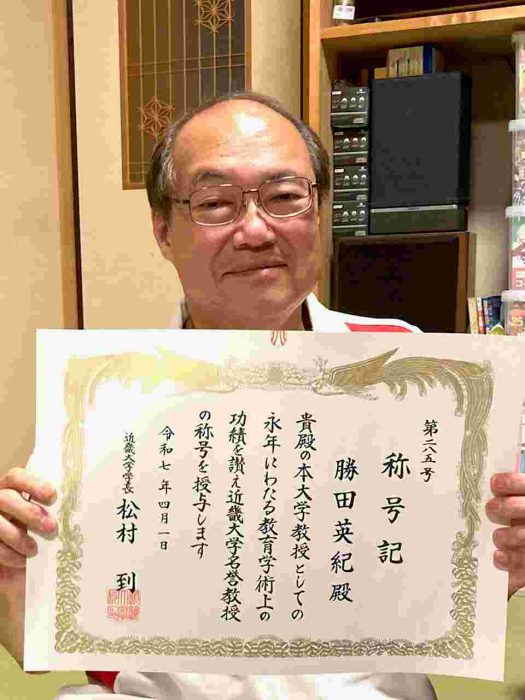 第二八五号
称号記
勝田英紀殿
貴殿の本大学教授としての
永年にわたる教育学術上の
功績を讃え近畿大学名誉教授
の称号を授与します
令和七年四月一日
近畿大学学長 松村到